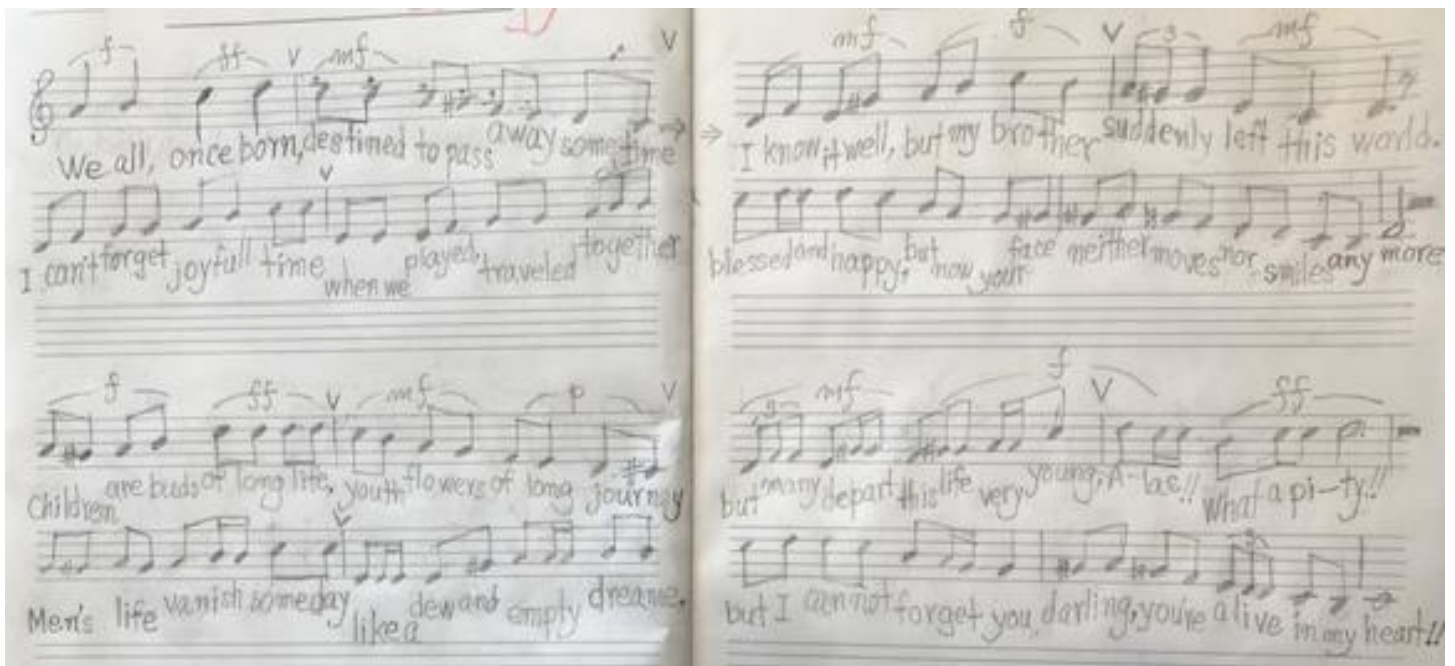 f ff V mf V
We all, once born, destined to pass away sometime
I can't forget joyfull time when we played, traveled together
f ff V mf p V
Children are buds of long life, youth flowers of long journey
Men's life vanish someday like a dew and empty dreame.
mf f V 3 mf
I know it well, but my brother suddenly left this world.
blessed and happy, but now your face neither moves nor smiles any more
3 mf f V ff
but many depart this life very young, A-las!! What a pi-ty!!
but I can not forget you, darling, you're alive in my heart!!